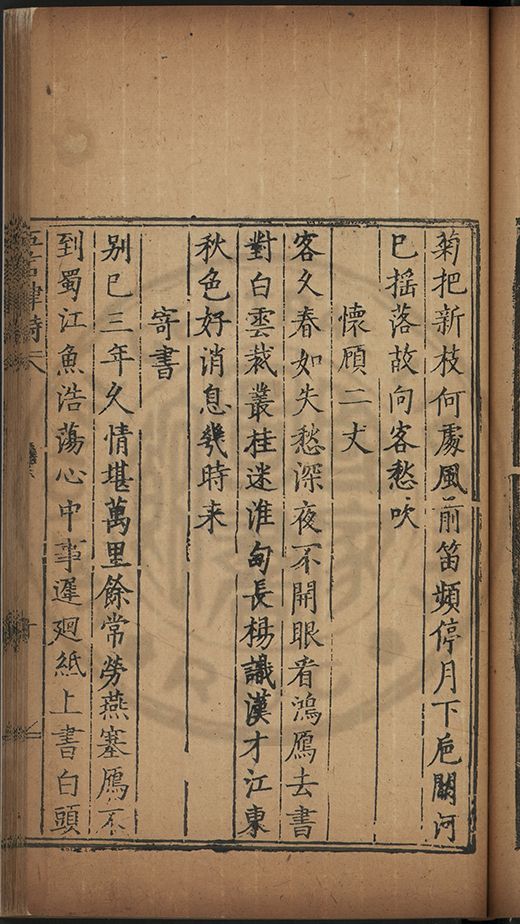 菊把新枝何處風前笛頻停月下卮關河
已搖落故向客愁吹
懷顧二丈
客久春如失愁深夜不開眼看鴻鴈去書
對白雲裁叢桂迷淮甸長楊議漢才江東
秋色好消息幾時来
寄書
別已三年久情堪萬里餘常勞燕塞鴈不
到蜀江魚浩蕩心中事遲迴紙上書白頭
五言律詩